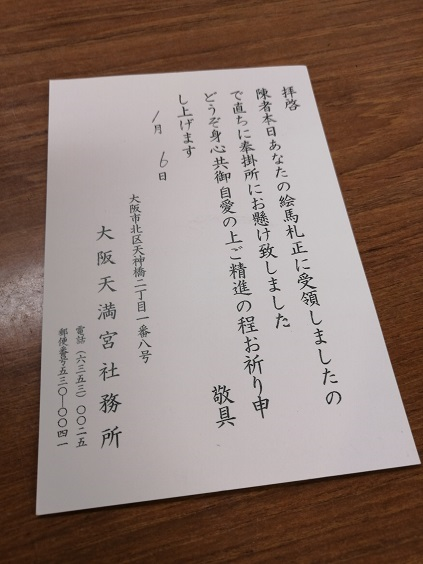 拝啓
陳者本日あなたの絵馬札正に受領しましたの
で直ちに奉掛所にお懸け致しました
どうぞ身心共御自愛の上ご精進の程お祈り申
し上げます
敬具
1月 6日
大阪市北区天神橋二丁目一番八号
大阪天満宮社務所
電話(六三五三)〇〇二五
郵便番号五三〇―〇〇四一